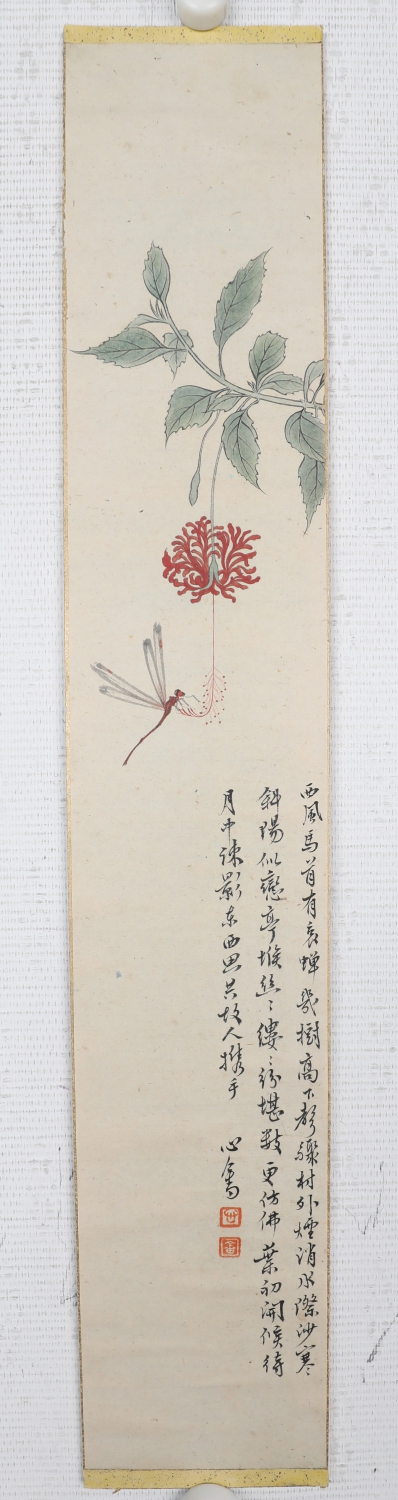 西風馬首有哀蟬幾樹高下聲驟村外煙消水際沙寒
斜陽似戀亭堠絲絲縷縷紛堪數更仿佛葉初開候待
月中疎影東西思共故人攜手
心畬